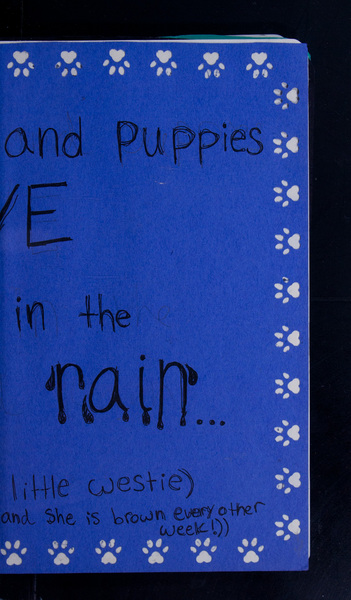 and puppies
VE
in the
rain...
little westie)
and she is brown every other
week!))